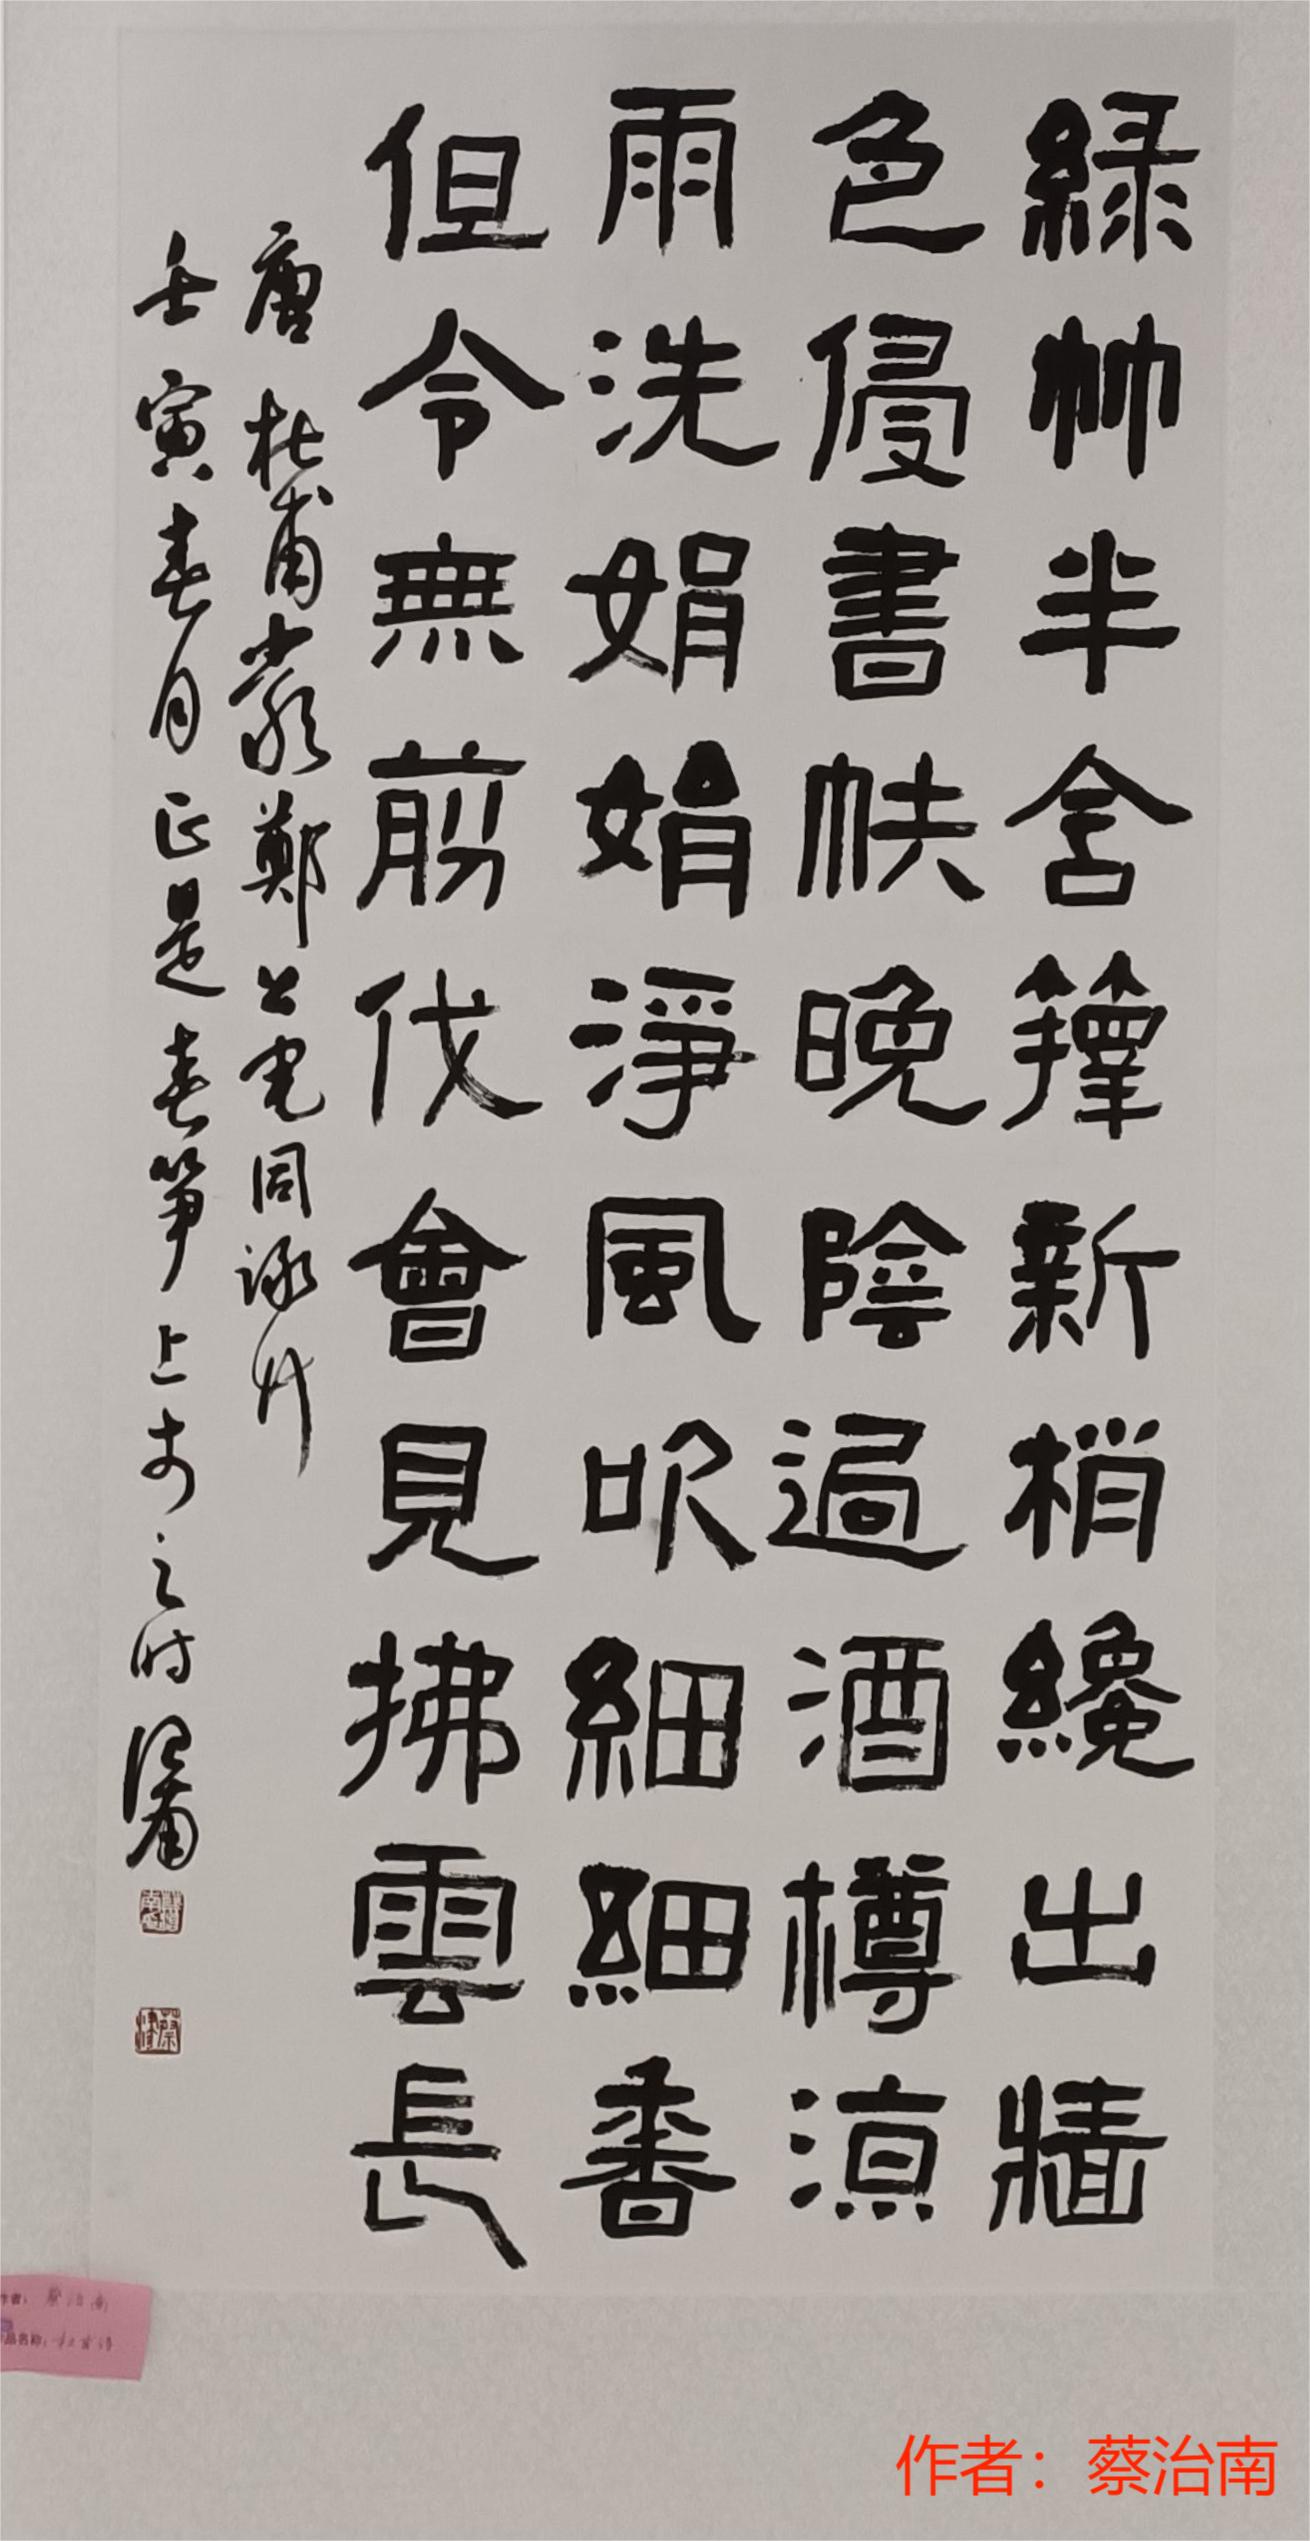 綠帥半含籜新梢纔出牆
色侵書帙晚陰過酒樽涼
雨洗娟娟淨風吹細細香
但令無剪伐會見拂雲長
唐杜甫嚴鄭公宅同詠竹
壬寅春月正是春筍上市之时
作者：蔡治南
作品名称：杜甫诗
作者：蔡治南